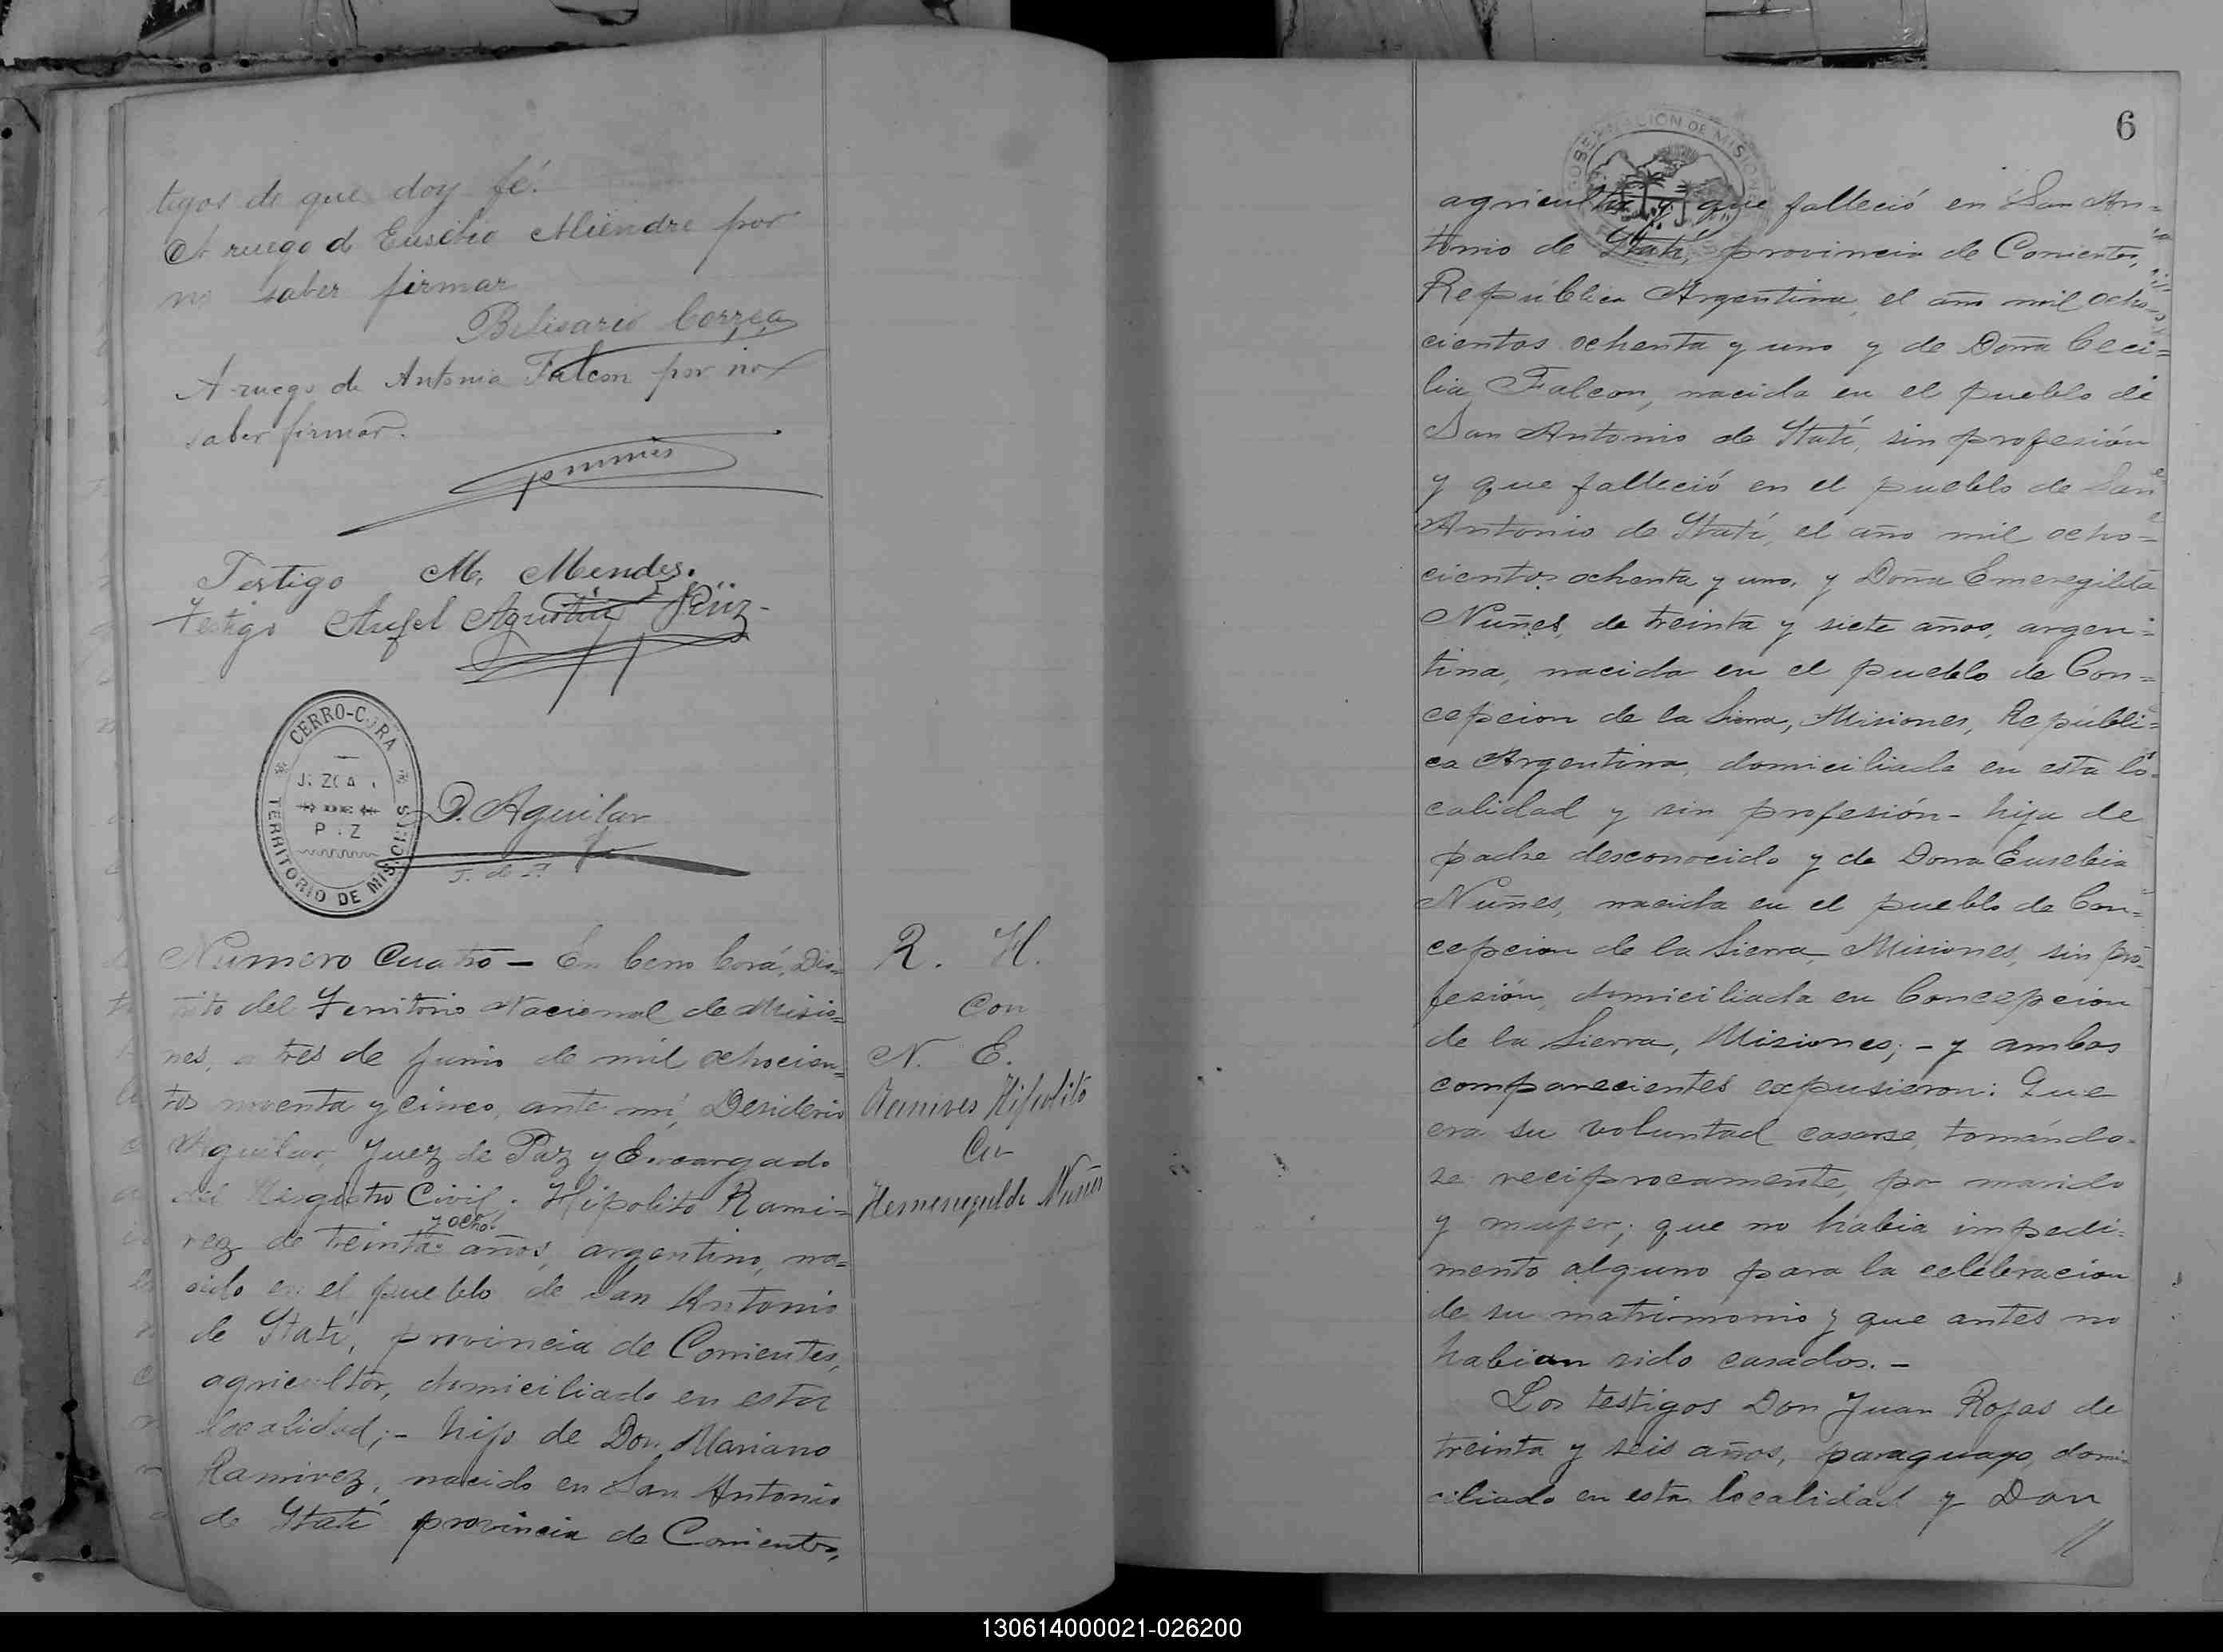 tigos de que doy fé.
A ruego d Eusebio Aliendre por
no saber firmar
Belisario Correa
A ruego de Antonia Falcon por no
saber firmar.
Testigo M. Mendes.
Testigo Angel Agustin
CERRO-CORA
DE
TERRITORIO DE MISIONES
D. Aguilar
J. de P.
Número Cuatro – En Cerro Corá, Dis=
trito del Territorio Nacional de Misio=
nes, a tres de Junio de mil ochocien=
tos noventa y cinco, ante mí, Desiderio
Aguilar, Juez de Paz y Encargado
del Registro Civil: Hipolito Rami=
y ocho.
rez de treinta años, argentino, na=
cido en el pueblo de San Antonio
de Itatí, provincia de Corrientes,
agricultor, domiciliado en esta
localidad; – hijo de Don Mariano
Ramirez, nacido en San Antonio
de Itatí provincia de Corrientes,
R. H.
con
N. E.
Ramires Hipolito
Con
Hemenegilda Nuñes
6
GOBERNACION DE MISIONES
agricultor y que falleció en San An=
tonio de Itatí, provincia de Corrientes,
República Argentina, el año mil ocho=
cientos ochenta y uno y de Doña Ceci=
lia Falcon, nacida en el pueblo de
San Antonio de Itatí, sin profesión
y que falleció en el pueblo de San
Antonio de Itatí, el año mil ocho=
cientos ochenta y uno, y Doña Emeregilda
Nuñes, de treinta y siete años, argen=
tina, nacida en el pueblo de Con=
cepcion de la Sierra, Misiones, Repúbli=
ca Argentina, domiciliada en esta lo=
calidad y sin profesión – hija de
padre desconocido y de Dona Eusebia
Nuñes, nacida en el pueblo de Con=
cepcion de la Sierra, Misiones, sin pro=
fesión, domiciliada en Concepcion
de la Sierra, Misiones; – y ambos
comparecientes expusieron: Que
era su voluntad casarse, tomándo=
se reciprocamente, por marido
y mujer; que no habia impedi=
mento alguno para la celebracion
de su matrimonio y que antes no
habian sido casados. –
Los testigos Don Juan Rojas de
treinta y seis años, paraguayo, domi=
ciliado en esta localidad y Don
//
130614000021-026200